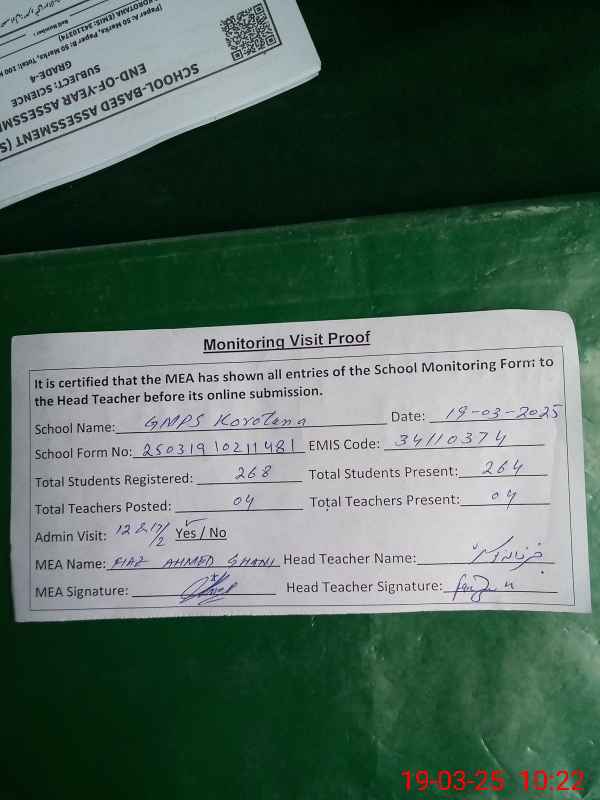 SCHOOL-BASED ASSESSMENT (S
END-OF-YEAR ASSESSM
SUBJECT: SCIENCE
GRADE-4
KOROTANA (EMIS: 34110374)
(Paper A: 50 Marks, Paper B: 50 Marks, Total: 100
Roll Number
Monitoring Visit Proof
It is certified that the MEA has shown all entries of the School Monitoring Form to
the Head Teacher before its online submission.
School Name: GMPS Korotana Date: 19-03-2025
School Form No: 25031910211481 EMIS Code: 34110374
Total Students Registered: 268 Total Students Present: 264
Total Teachers Posted: 04 Total Teachers Present: 04
Admin Visit: 12 & 17/2 Yes / No
MEA Name: FIAZ AHMED GHANI Head Teacher Name:
MEA Signature: Head Teacher Signature:
19-03-25 10:22